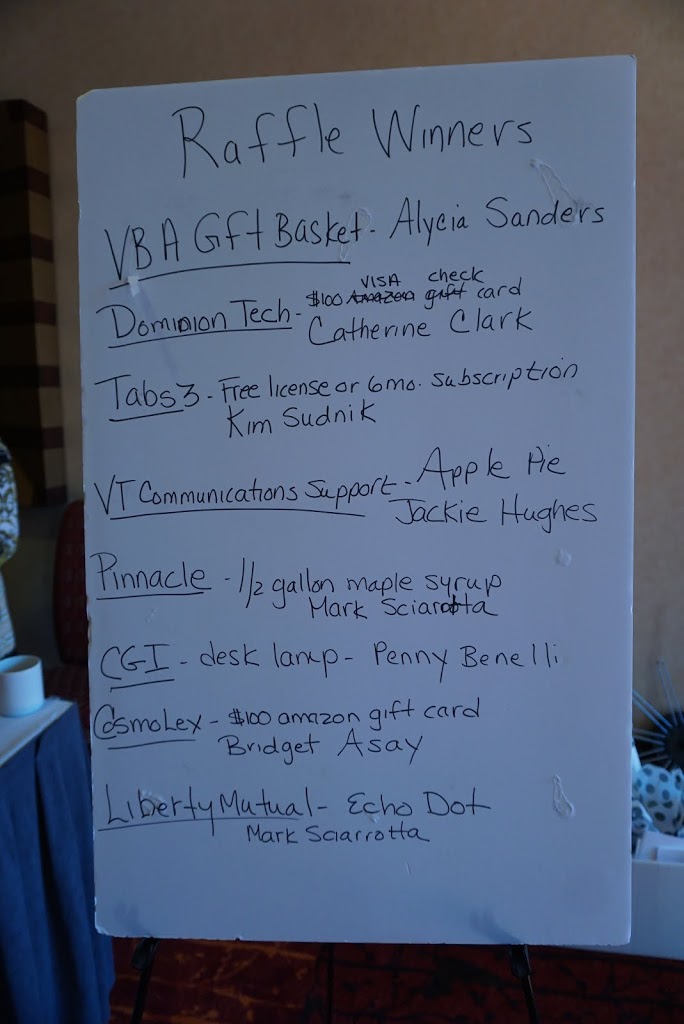 Raffle Winners
VBA Gft Basket - Alycia Sanders
VISA check
Dominion Tech - $100 Amazon gift card
Catherine Clark
Tabs3 - Free license or 6mo. subscription
Kim Sudnik
VT Communications Support - Apple Pie
Jackie Hughes
Pinnacle - 1/2 gallon maple syrup
Mark Sciarotta
CGI - desk lamp - Penny Benelli
CosmoLex - $100 amazon gift card
Bridget Asay
Liberty Mutual - Echo Dot
Mark Sciarrotta